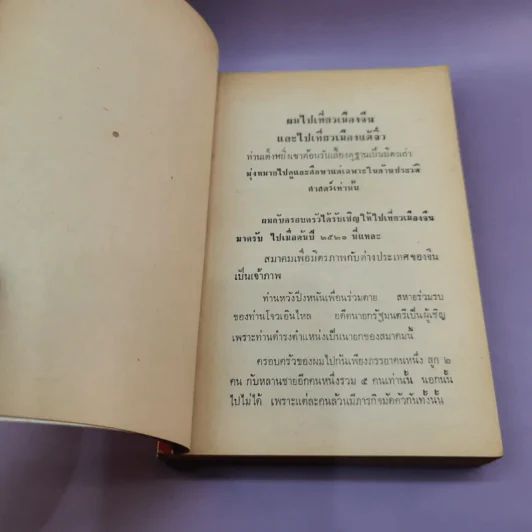 ผมไปเที่ยวเมืองจีน
และไปเที่ยวเมืองแต้จิ๋ว
ท่านเติ้งหยิ่งเชาต้อนรับเลี้ยงดูฐานเป็นมิตรเก่า
มุ่งหมายไปดูและศึกษาแต่เฉพาะในด้านประวัติ
ศาสตร์เท่านั้น
ผมกับครอบครัวได้รับเชิญให้ไปเที่ยวเมืองจีน
มาครับ ไปเมื่อต้นปี ๒๕๒๑ นี่แหละ
สมาคมเพื่อมิตรภาพกับต่างประเทศของจีน
เป็นเจ้าภาพ
ท่านหวังปิ่งหนันเพื่อนร่วมตาย สหายร่วมรบ
ของท่านโจวเอินไหล อดีตนายกรัฐมนตรีเป็นผู้เชิญ
เพราะท่านดำรงตำแหน่งเป็นนายกของสมาคมนี้
ครอบครัวของผมไปกันเพียงภรรยาคนหนึ่ง ลูก ๒
คน กับหลานชายอีกคนหนึ่งรวม ๕ คนเท่านั้น นอกนั้น
ไปไม่ได้ เพราะแต่ละคนล้วนมีภารกิจมัดตัวกันทั้งนั้น